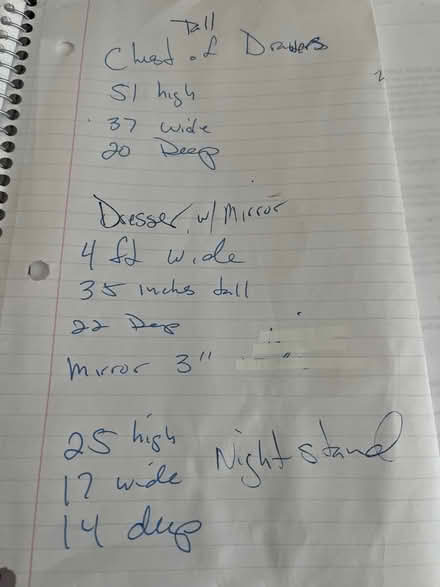 Tall
Chest of Drawers
51 high
37 wide
20 Deep
Dresser w/ Mirror
4 ft wide
35 inches tall
22 Deep
Mirror 3"
25 high
17 wide Nightstand
14 deep